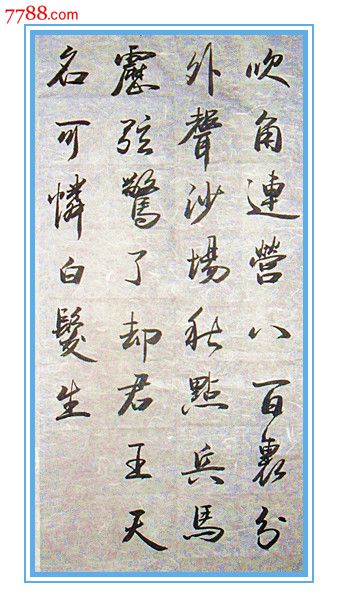 7788.com
吹角連營八百裏分
外聲沙場秋點兵馬
靂弦驚了却君王天
名可憐白髮生